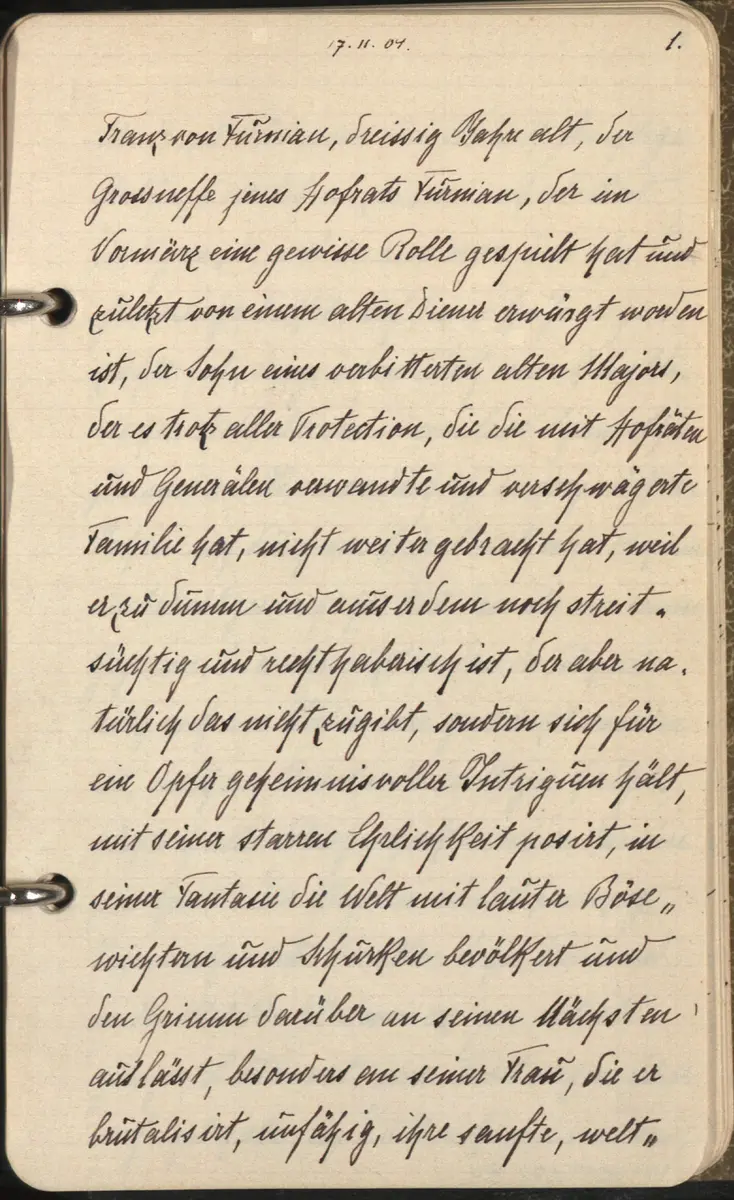 17.II.04.
1.
Franz von Furnian, dreissig Jahre alt, der
Grossneffe jenes Hofrats Furnian, der im
Vormärz eine gewisse Rolle gespielt hat und
zuletzt von einem alten Diener erwürgt worden
ist, der Sohn eines verbitterten alten Majors,
der es trotz aller Protection, die die mit Hofräten
und Generälen verwandte und verschwägerte
Familie hat, nicht weiter gebracht hat, weil
er zu dumm und ausserdem noch streit-
süchtig und rechthaberisch ist, der aber na-
türlich das nicht zugibt, sondern sich für
ein Opfer geheimnisvoller Intriguen hält,
mit seiner starren Ehrlichkeit posirt, in
seiner Fantasie die Welt mit lauter Böse„
wichtern und Schurken bevölkert und
den Grimm darüber an seinen Nächsten
auslässt, besonders an seiner Frau, die er
brutalisirt, unfähig, ihre sanfte, welt„